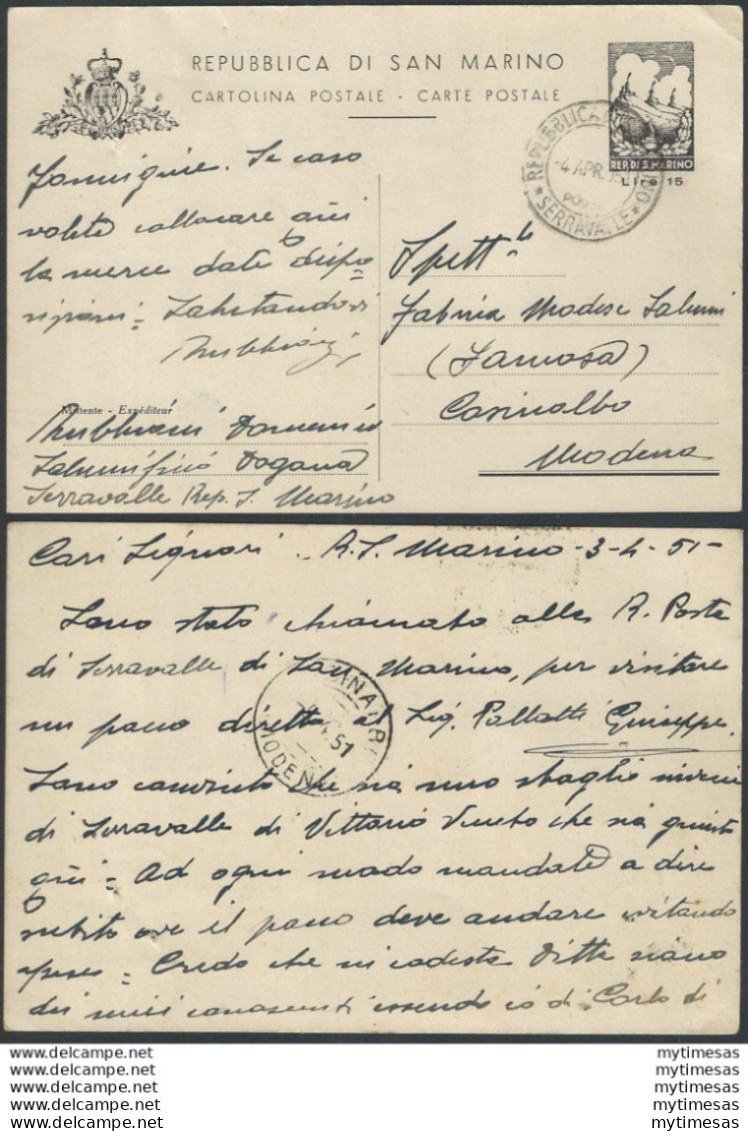 REPUBBLICA DI SAN MARINO
CARTOLINA POSTALE - CARTE POSTALE
REP. DI S. MARINO
Lire 15
REPUBBLICA DI
-4 APR. 51
SERRAVALLE
Se caso
volete collocare qui
la merce date dispo=
sizioni = Salutandovi
Rubbiani
Mittente - Expéditeur
Rubbiani Domenico
Salumificio Dogana
Serravalle Rep. S. Marino
Spett le
Fabrica Modese Salumi
(Samosa)
Casinalbo
Modena
Cari Signori R. S. Marino - 3-4-51-
Sono stato chiamato alle R. Poste
di Serravalle di San Marino, per visitare
un pacco diretto al Sig. Pallotti Giuseppe.
Sono convinto che sia uno sbaglio invece
di Serravalle di Vittorio Veneto che sia giunto
qui = Ad ogni modo mandate a dire
subito ove il pacco deve andare evitando
spese = Credo che in codesta Ditta siano
dei miei conoscenti essendo io di Carlo di
CASINALBO
4.51
MODENA
www.delcampe.net mytimesas
www.delcampe.net mytimesas
www.delcampe.net mytimesas
www.delcampe.net mytimesas
www.delcampe.net mytimesas